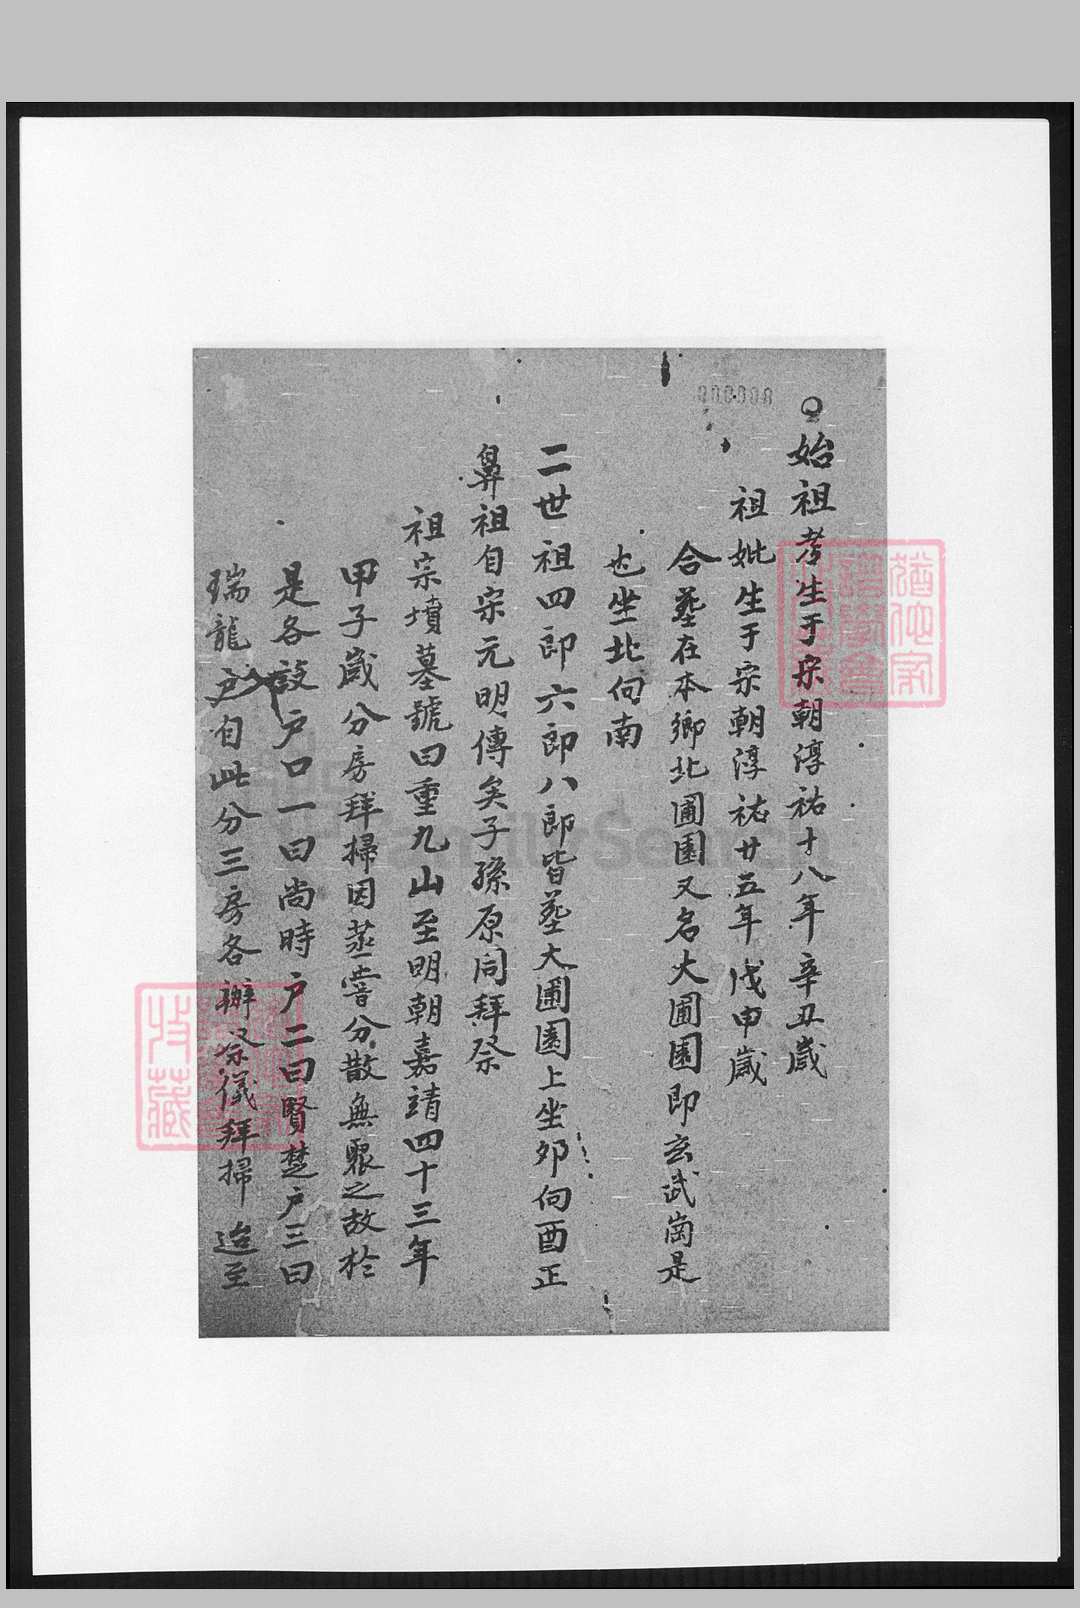 始祖考生于宋朝淳祐十八年辛丑歲
祖妣生于宋朝淳祐廿五年戊申歲
合塟在本鄉北圃園又名大圃園即玄武崗是
也坐北向南
二世祖四郎六郎八郎皆塟大圃園上坐夘向酉正
鼻祖自宗元明傳矣子孫原同拜祭
祖宗墳墓號曰重九山至明朝嘉靖四十三年
甲子歲分房拜掃因蒸嘗分散無眾之故於
是各設户口一曰尚時户二曰賢楚户三曰
瑞龍户自此分三房各辦祭儀拜掃迨至
FamilySearch